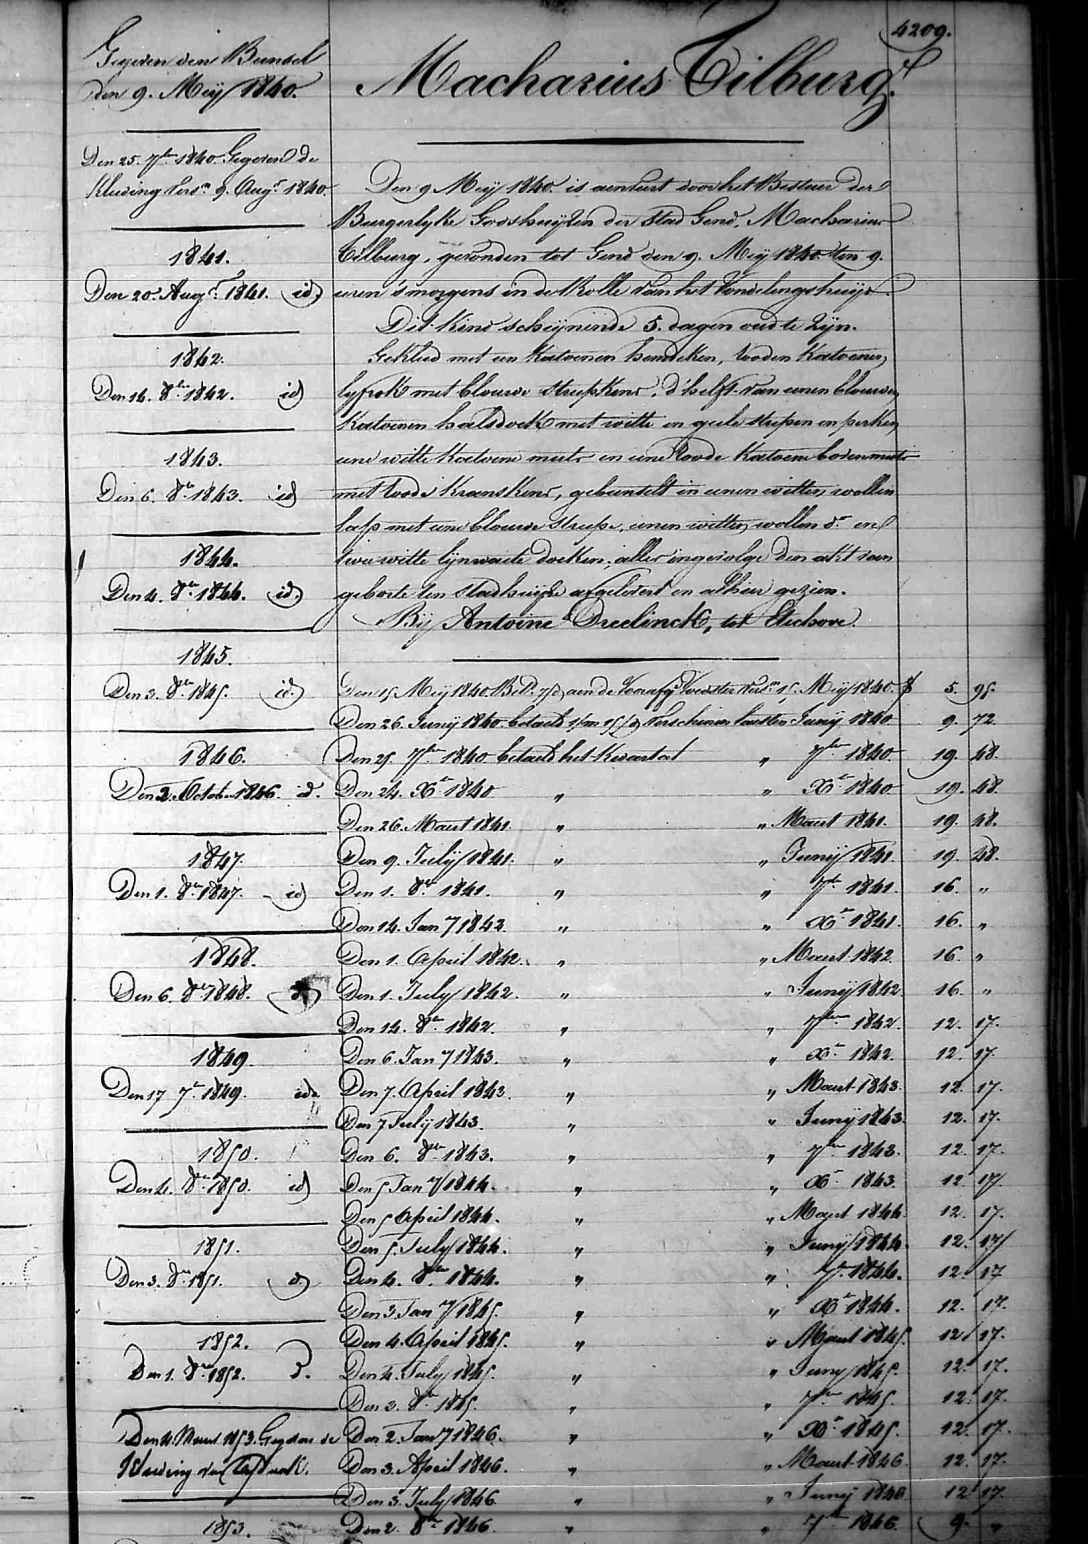 4209.
Macharius Tilburg.
Gegeven den Bunsel
den 9. Meij 1840.
Den 25. 7br 1840 Gegeven de
Kleding vers.n 9. Augt 1840.
1841.
Den 20. Augt 1841. id.
1842.
Den 14. 8br 1842. id
1843.
Den 6. 8br 1843. id
1844.
Den 4. 8br 1844. id.
1845.
Den 3. 8bre 1845. id.
1846.
Den 2. Octob. 1846. id.
1847.
Den 1. 8br 1847. id
1848.
Den 6. 8br 1848.
1849.
Den 17 7br 1849. id.
1850.
Den 4. 8br 1850. id
1851.
Den 3. 8br 1851. id
1852.
Den 1. 8br 1852.
Den 4. Maert 1853. Gegeven de
Kleeding van
1853.
Den 9 Meij 1840. is aenveert door het Bestuer der
Burgerlyke Godshuijzen der stad Gend, Macharius
Tilburg, gevonden tot Gend den 9. Meij 1840. ten 9.
uren s'morgens in de Rolle van het Vondelingshuijs.
Dit kind scheijnende 5. dagen oud te zijn.
Gekleed met een katoenen hemdeken, rooden katoenen
lyfrok met blauwe streepkens, d'helft van eenen blauwen
katoenen halsdoek met witte en geele strepen en perken,
eene witte katoene muts en eene roode katoene bovenmuts
met roode kranskens, gebunselt in eenen witten wollen
lap met eene blauwe streepe, eenen witten wollen d.o en
twee witte lynwaete doeken, alles ingevolge den akt van
geborte ten stadhuijze afgelevert en alhier gezien.
Bij Antoine Dreelinck, tot Etichove.
Den 15 Meij 1840. Bet. aen de Voorzg Voedster vers.n 15. Meij 1840. f 5. 95.
Den 26. Junij 1840 betaeld 1/m 15/d verschenen Junij 1840 9. 72
Den 25. 7bre 1840 betaeld het kwartael " 7bre 1840 19. 48.
Den 24. Xbr 1840 " " Xbr 1840 19. 48.
Den 26. Maert 1841 " " Maert 1841. 19. 48.
Den 9. Julij 1841. " " Junij 1841 19. 48.
Den 1. 8br 1841. " " 7br 1841. 16. "
Den 14. Jan 7 1842. " " Xbr 1841. 16. "
Den 1. April 1842. " " Maert 1842 16. "
Den 1. July 1842. " " Junij 1842 16. "
Den 14. 8br 1842. " " 7bre 1842. 12. 17.
Den 6. Jan 7 1843. " " Xbr 1842. 12. 17.
Den 7. April 1843. " " Maert 1843 12. 17.
Den 7 Julij 1843. " " Junij 1843 12. 17.
Den 6. 8bre 1843. " " 7bre 1843. 12. 17.
Den 5 Jan 7 1844. " " Xbr 1843. 12 17
Den 5 April 1844. " " Maert 1844. 12. 17.
Den 5. July 1844. " " Junij 1844. 12. 17
Den 4. 8bre 1844. " " 7br 1844. 12. 17
Den 3 Jan 7 1845. " " Xbr 1844. 12. 17.
Den 4. April 1845. " " Maert 1845. 12 17.
Den 4. July 1845. " " Juny 1845. 12. 17.
Den 3. 8br 1845. " " 7bre 1845. 12. 17.
Den 2. Jan 7 1846. " " Xbr 1845. 12. 17.
Den 3. April 1846. " " Maert 1846. 12. 17.
Den 3. July 1846. " " Junij 1846 12 17.
Den 2. 8br 1846. " " 7bre 1846. 9. "